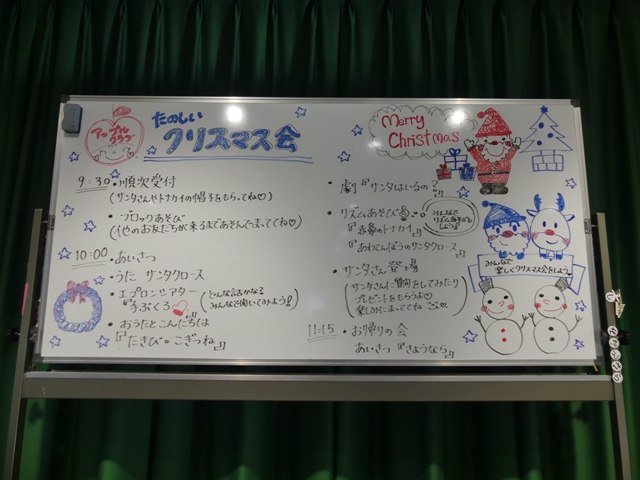 アップル
クラブ
たのしい
クリスマス会
9:30 ・順次受付
(サンタさんやトナカイの帽子をもらってね♡)
・ブロックあそび
(他のお友だちが来るまであそんでまっててね♡)
10:00 ・あいさつ
・うた サンタクロース
・エプロンシアター
『手ぶくろ』
(どんな話かな?
みんなで聞いてみよう!)
・おうたとこんにちは
『たきび。こぎつね』
Merry
Christmas
・劇『サンタはいるの?』
・リズムあそび
『赤鼻のトナカイ』
『あわてんぼうのサンタクロース』
みんなで
リズムあそびを
しよう!
・サンタさん登場
(サンタさんに質問をしてみたり
プレゼントをもらうよ♡
楽しみにまっててね)
11:15 ・お帰りの会
あいさつ『さようなら』
みんなで
楽しくクリスマス会をしよう